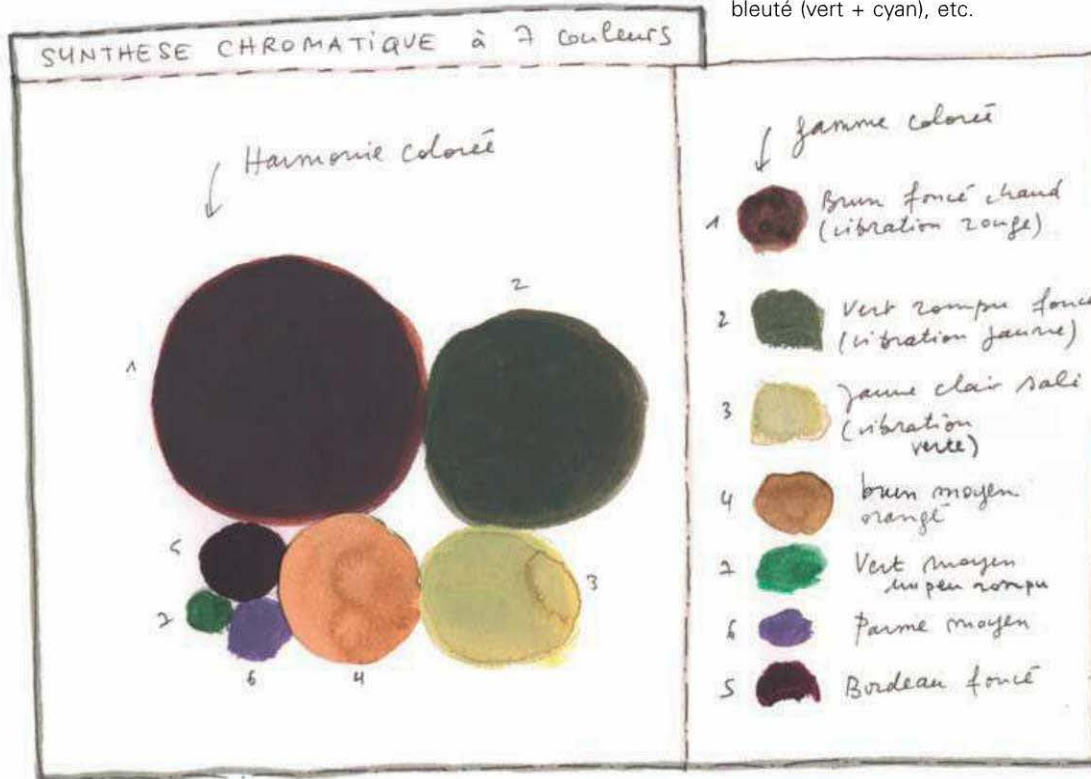 bleuté (vert + cyan), etc.
SYNTHESE CHROMATiQUE à 7 couleurs
Harmonie colorée
1
2
5
7
6
4
3
gamme colorée
1 Brun foncé chaud
(vibration rouge)
2 Vert rompu foncé
(vibration jaune)
3 Jaune clair sali
(vibration
verte)
4 brun moyen
orangé
7 Vert moyen
un peu rompu
6 Parme moyen
5 Bordeau foncé